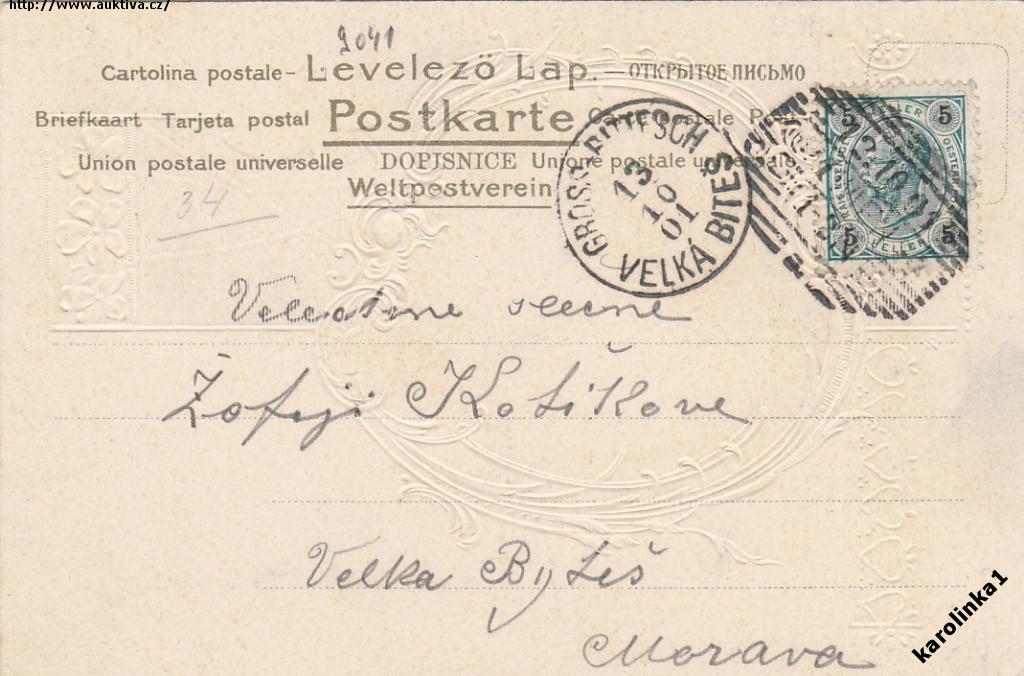 http://www.auktiva.cz/
9041
Cartolina postale - Levelező Lap. — ОТКРЫТОЕ ПИСЬМО
Briefkaart Tarjeta postal Postkarte
Union postale universelle DOPISNICE Unione postale
Weltpostverein
34
GROSS-BITTESCH
13
10
01
VELKÁ BITEŠ
5 5
HELLER
5 5
slečně
Žofeji Kotíkove
Velka Byteš
Morava
karolinka1